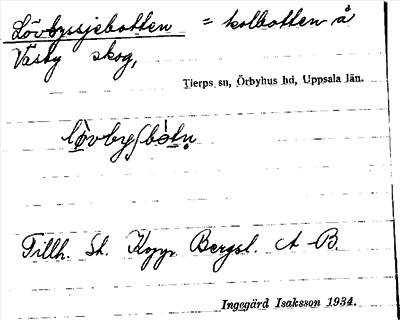 Lövbyssjebotten = kolbotten å
Västy skog,
Tierps sn, Örbyhus hd, Uppsala län.
lövbyʃbòtṇ
Tillh. St. Kopp. Bergsl. A-B.
Ingegärd Isaksson 1934.